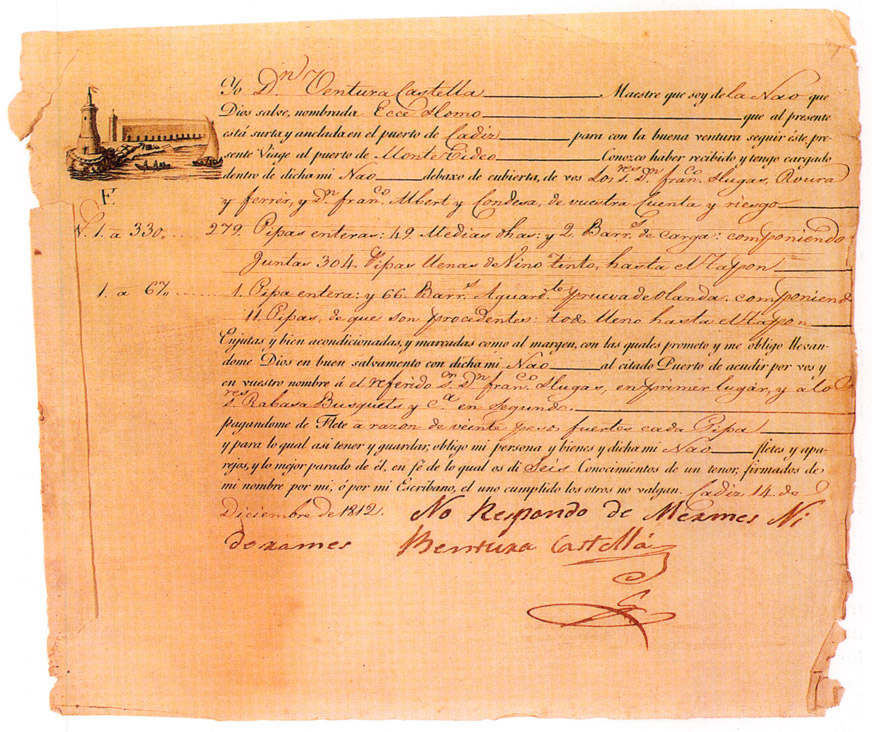 Yo Dn Ventura Castella Maestre que soy de la Nao que
Dios salve, nombrada Ecce Homo que al presente
está surta y anclada en el puerto de Cadiz para con la buena ventura seguir éste pre-
sente Viage al puerto de Monte Video Conozco haber recibido y tengo cargado
dentro de dicha mi Nao debaxo de cubierta, de vos Los Sres. Dn franco. Llugas, Roura
F.
y ferrer, y Dn franco. Albert y Condesa, de vuestra Cuenta y riesgo
N. 1. a 330. 279. Pipas enteras: 49. Medias dhas: y 2. Barrs. de carga: componiendo
Juntas 304. Pipas llenas de Vino tinto, hasta el tapon
1. a 67. 1. Pipa entera: y 66. Barrs. Aguardte. prueva de olanda: componiend
11 Pipas, de que son procedentes: todo lleno hasta el tapon
Enjutas y bien acondicionadas, y marcadas como al margen, con las quales prometo y me obligo llevan-
dome Dios en buen salvamento con dicha mi Nao al citado Puerto de acudir por vos y
en vuestro nombre á el referido Sr. Dn franco. Llugas, en primer lugár, y á los
Sres. Rabasa Busquets y Ca. en Segundo.
pagandome de Flete a razon de veinte pesos fuertes cada Pipa
y para lo qual asi tener y guardar, obligo mi persona y bienes y dicha mi Nao fletes y apa-
rejos, y lo mejor parado de él, en fé de lo qual os di Seis Conocimientos de un tenor, firmados de
mi nombre por mi, ó por mi Escribano, el uno cumplido los otros no valgan. Cadiz 14. de
Diciembre de 1812. No Respondo de Mexmes Ni
dexames Bentura Castellá